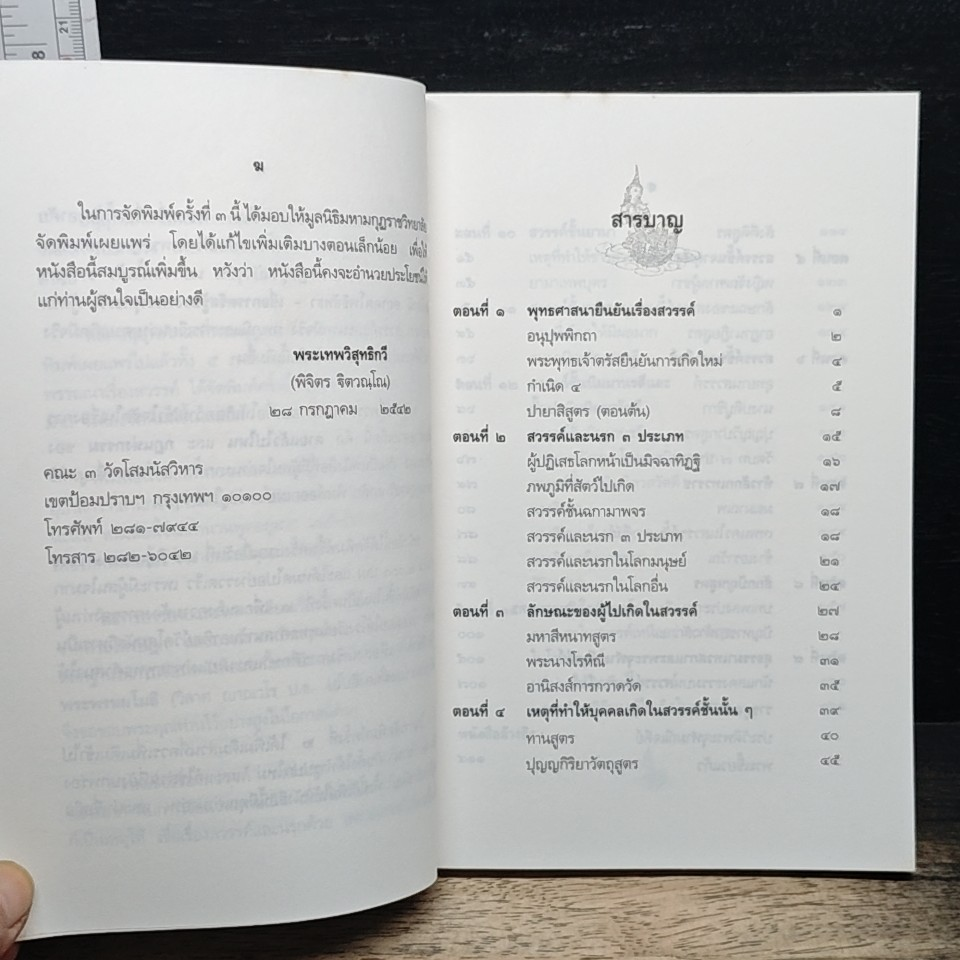 21
8
ฆ
ในการจัดพิมพ์ครั้งที่ ๓ นี้ ได้มอบให้มูลนิธิมหามกุฏราชวิทยาลัย
จัดพิมพ์เผยแพร่ โดยได้แก้ไขเพิ่มเติมบางตอนเล็กน้อย เพื่อให้
หนังสือนี้สมบูรณ์เพิ่มขึ้น หวังว่า หนังสือนี้คงจะอำนวยประโยชน์ให้
แก่ท่านผู้สนใจเป็นอย่างดี
พระเทพวิสุทธิกวี
(พิจิตร ฐิตวณฺโณ)
๒๘ กรกฎาคม ๒๕๔๒
คณะ ๓ วัดโสมนัสวิหาร
เขตป้อมปราบฯ กรุงเทพฯ ๑๐๑๐๐
โทรศัพท์ ๒๘๑-๗๙๔๔
โทรสาร ๒๘๒-๖๐๔๒
สารบาญ
ตอนที่ ๑ พุทธศาสนายืนยันเรื่องสวรรค์ ๑
อนุปุพพิกถา ๒
พระพุทธเจ้าตรัสยืนยันการเกิดใหม่ ๔
กำเนิด ๔ ๕
ปายาสิสูตร (ตอนต้น) ๘
ตอนที่ ๒ สวรรค์และนรก ๓ ประเภท ๑๕
ผู้ปฏิเสธโลกหน้าเป็นมิจฉาทิฏฐิ ๑๖
ภพภูมิที่สัตว์ไปเกิด ๑๗
สวรรค์ชั้นฉกามาพจร ๑๘
สวรรค์และนรก ๓ ประเภท ๑๘
สวรรค์และนรกในโลกมนุษย์ ๒๑
สวรรค์และนรกในโลกอื่น ๒๔
ตอนที่ ๓ ลักษณะของผู้ไปเกิดในสวรรค์ ๒๗
มหาสีหนาทสูตร ๒๘
พระนางโรหิณี ๓๑
อานิสงส์การกวาดวัด ๓๕
ตอนที่ ๔ เหตุที่ทำให้บุคคลเกิดในสวรรค์ชั้นนั้น ๆ ๓๙
ทานสูตร ๔๐
ปุญญกิริยาวัตถุสูตร ๔๕